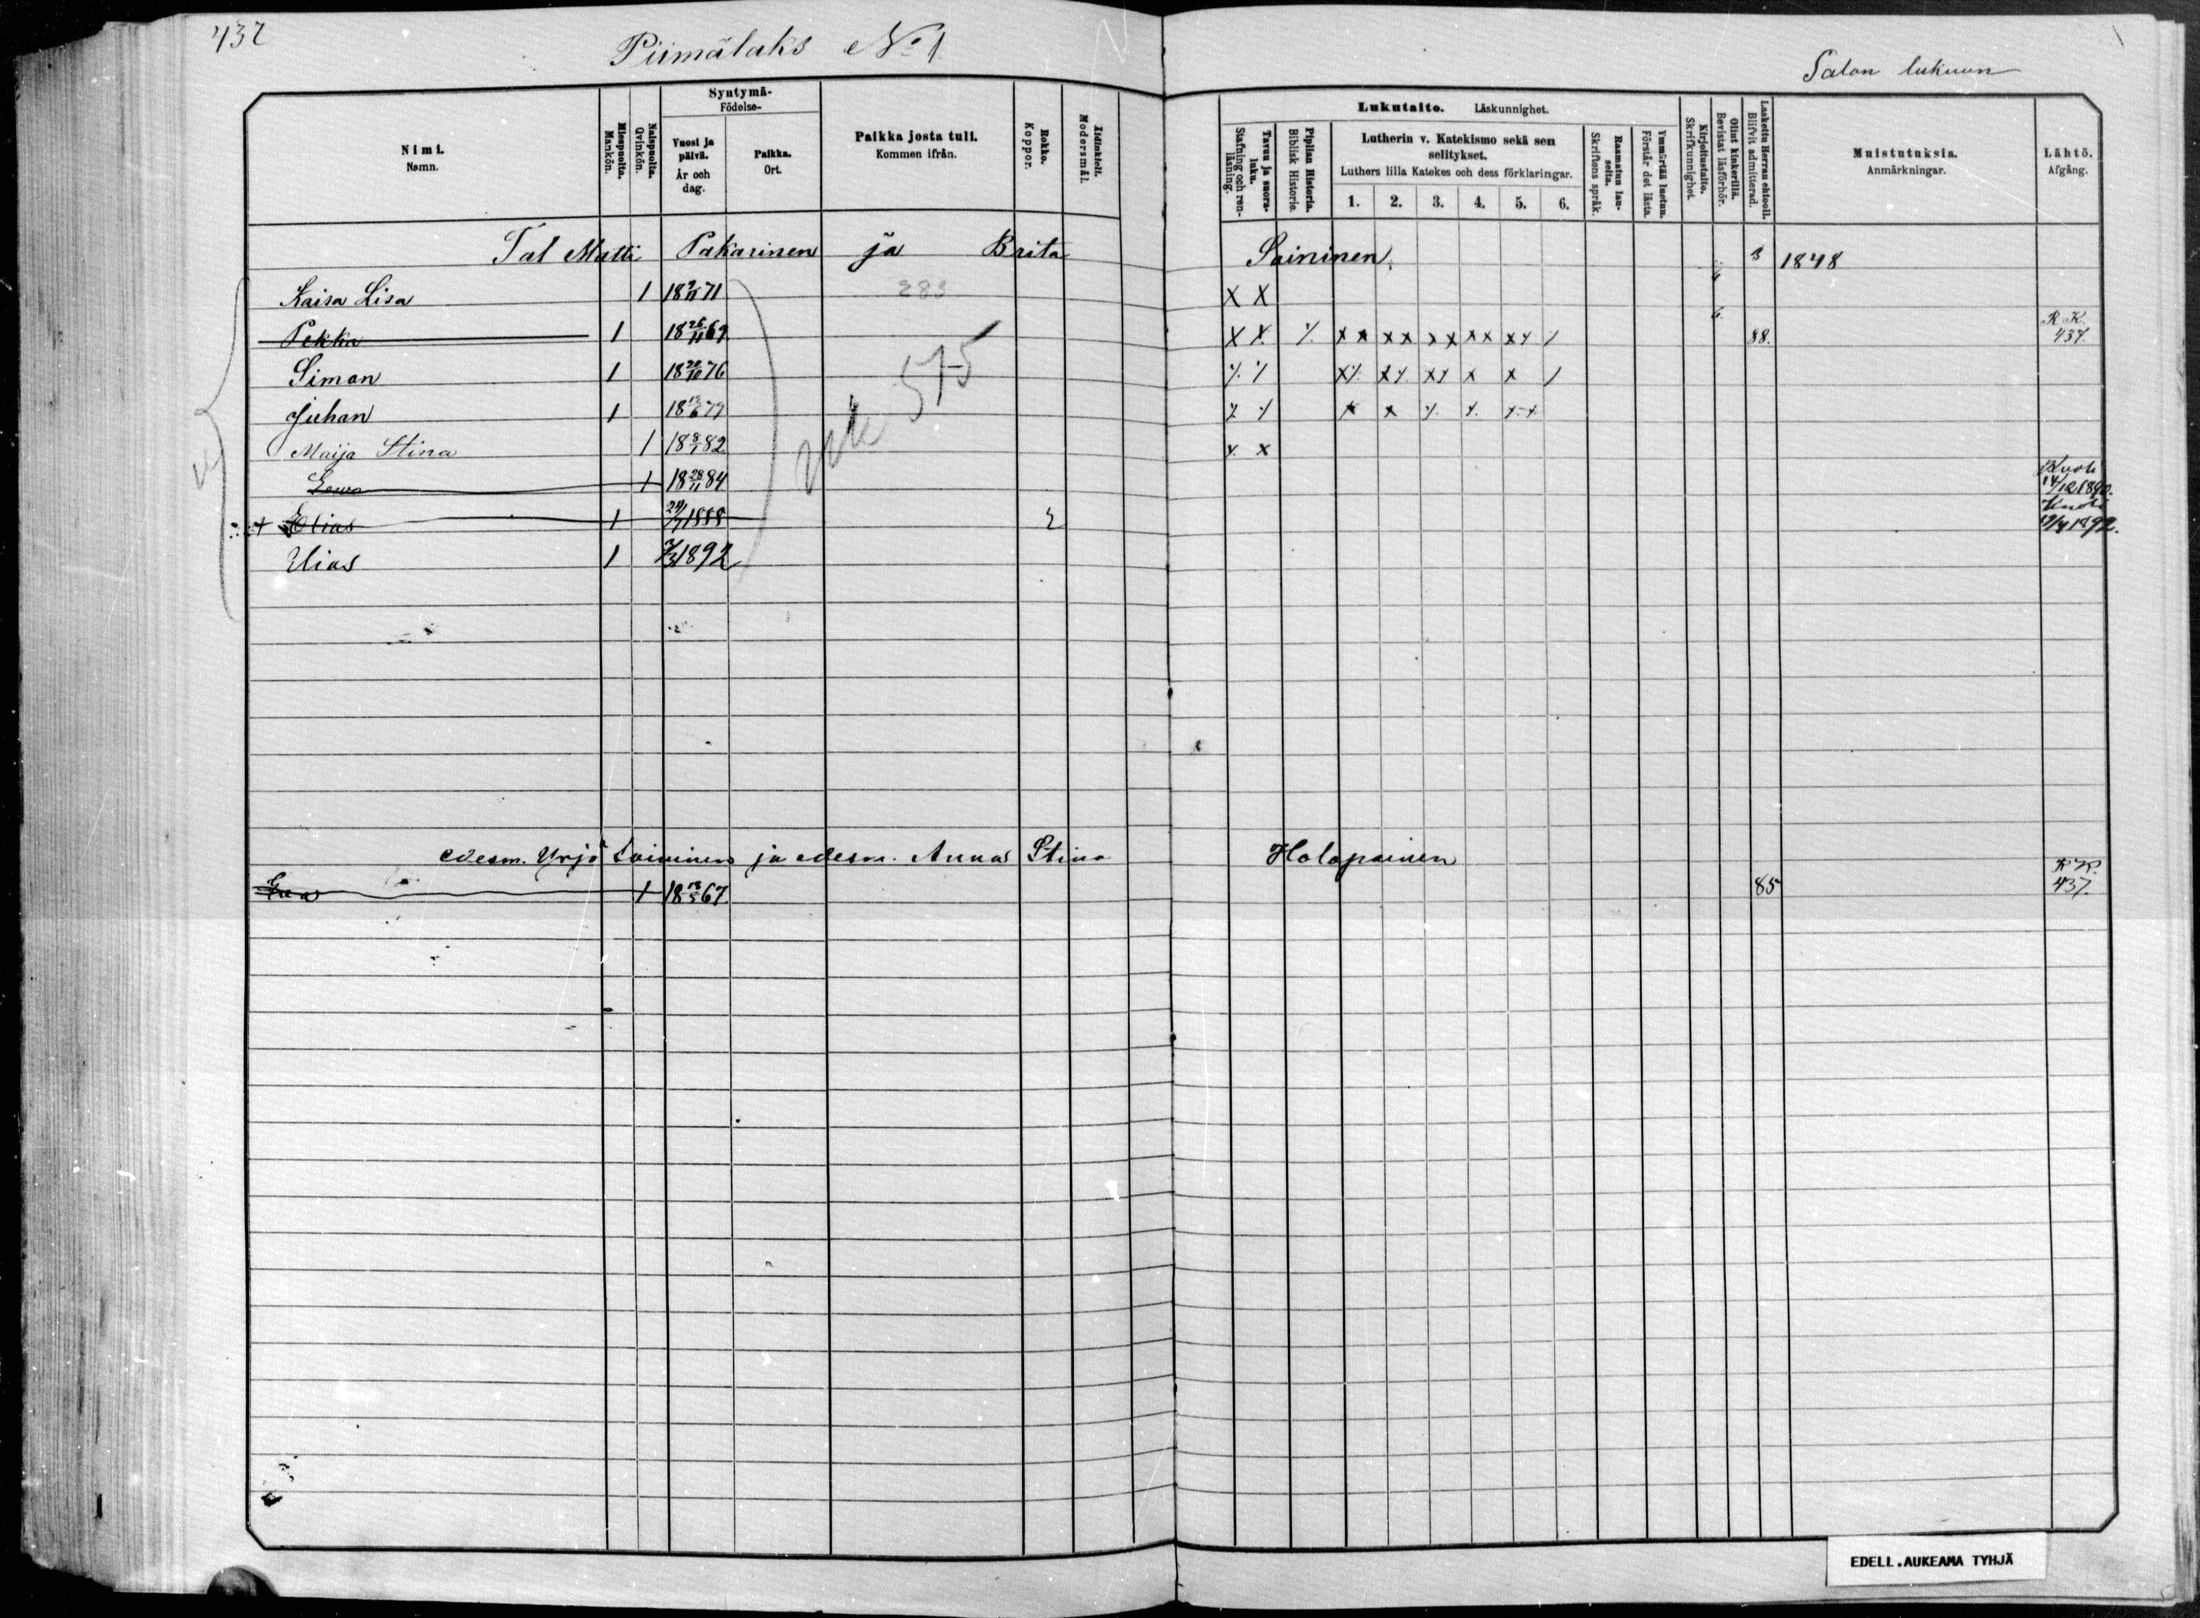 432
Piimälaks No 1
Salon lukuun
Nimi.
Namn.
Miespuolia.
Mankön.
Naispuolia.
Qvinkön.
Syntymä-
Födelse-
Vuosi ja
päivä.
År och
dag.
Paikka.
Ort.
Paikka josta tuli.
Kommen ifrån.
Rokko.
Koppor.
Äidinkieli.
Modersmål.
Tavuu ja suora-
luku.
Stafning och ren-
läsning.
Piplian Historia.
Biblisk Historie.
Lukutaito. Läskunnighet.
Lutherin v. Katekismo sekä sen
selitykset.
Luthers lilla Katekes och dess förklaringar.
1. 2. 3. 4. 5. 6.
Raamatun lau-
seita.
Skriftens språk.
Ymmärtää luetun.
Förstår det lästa.
Kirjoitustaito.
Skrifkunnighet.
Ollut kinkerillä.
Bevistat läsförhör.
Laskettu Herran ehtooll.
Blifvit admitterad.
Muistutuksia.
Anmärkningar.
Lähtö.
Afgång.
Tal Matti Pakarinen ja Brita Soininen 1848
Kaisa Lisa 1 71 283 X X
Pekka 1 18 26/11 69 X X 88. R.K. 437.
Simon 1 18 76
Juhan 1 18 79
575
Maija Stina 1 18 8/1 82
Eewa 1 18 28/11 84 Kuoli 14/12 1890.
+ Elias 1 1888 Kuoli 19/4 1892.
Elias 1 1892
edesm. Yrjö Soininen ja edesm. Anna Stina Holopainen
Eva 1 18 67. 85 R.K. 437.
EDELL.AUKEAMA TYHJÄ